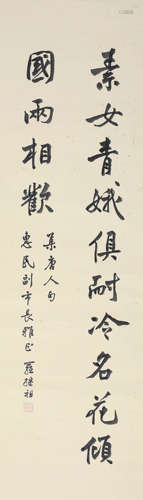 素女青娥俱耐冷名花傾
國兩相歡
集唐人句
惠民副市長雅正 羅繼祖